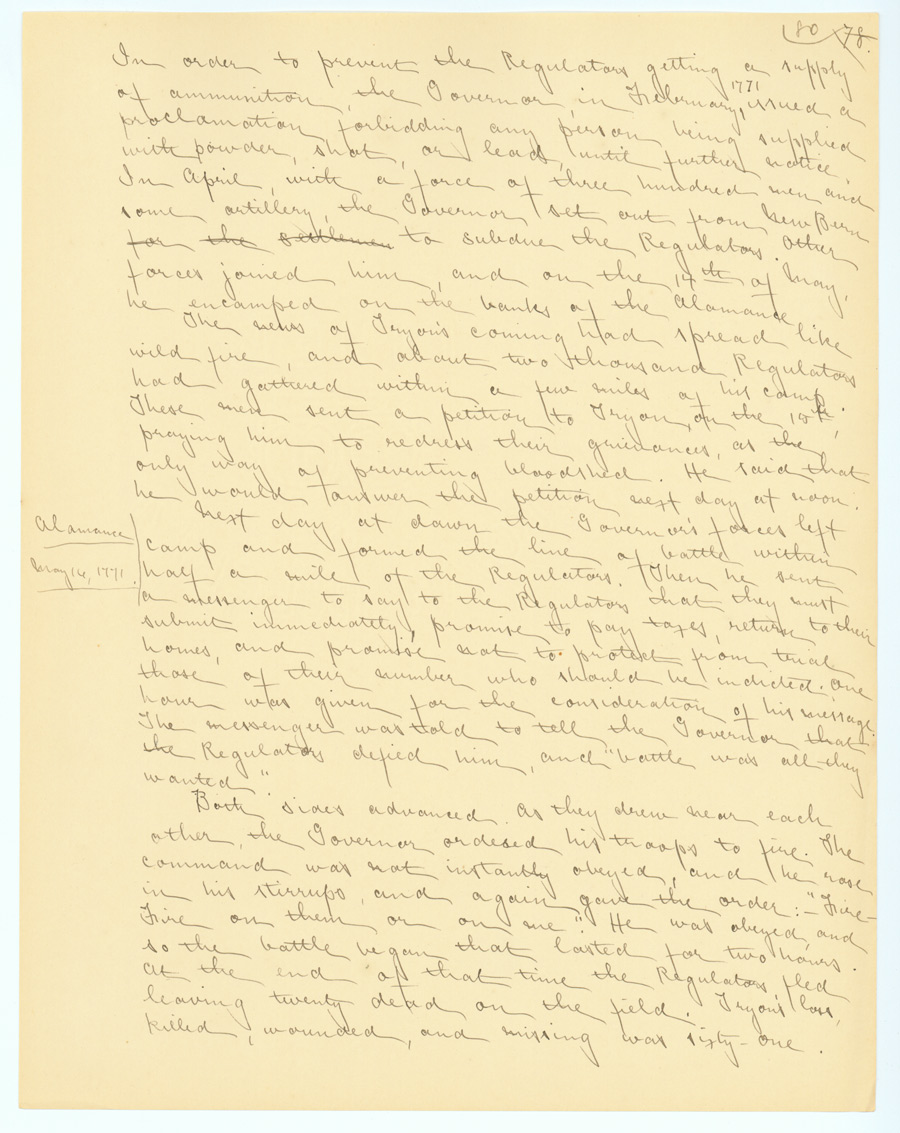 80 78.
In order to prevent the Regulators getting a supply
of ammunition, the Governor, in February, 1771, issued a
proclamation forbidding any person being supplied
with powder, shot, or lead, until further notice.
In April, with a force of three hundred men and
some artillery, the Governor set out from New Bern
for the settlemen to subdue the Regulators. Other
forces joined him, and on the 14th of May,
he encamped on the banks of the Alamance.
The news of Tryon's coming had spread like
wild fire, and about two thousand Regulators
had gathered within a few miles of his camp.
These men sent a petition to Tryon, on the 15th,
praying him to redress their grievances, as the
only way of preventing bloodshed. He said that
he would answer the petition next day at noon.
Next day at dawn the Governor's forces left
Alamance
camp and formed the line of battle within
May 16, 1771.
half a mile of the Regulators. Then he sent
a messenger to say to the Regulators that they must
submit immediately, promise to pay taxes, return to their
homes, and promise not to protect from trial
those of their number who should be indicted. One
hour was given for the consideration of his message.
The messenger was told to tell the Governor that
the Regulators defied him, and "battle was all they
wanted."
Both sides advanced. As they drew near each
other, the Governor ordered his troops to fire. The
command was not instantly obeyed, and he rose
in his stirrups, and again gave the order:- "Fire-
Fire on them or on me". He was obeyed, and
so the battle began that lasted for two hours.
At the end of that time the Regulators fled
leaving twenty dead on the field. Tryon's loss,
killed, wounded, and missing was sixty-one.